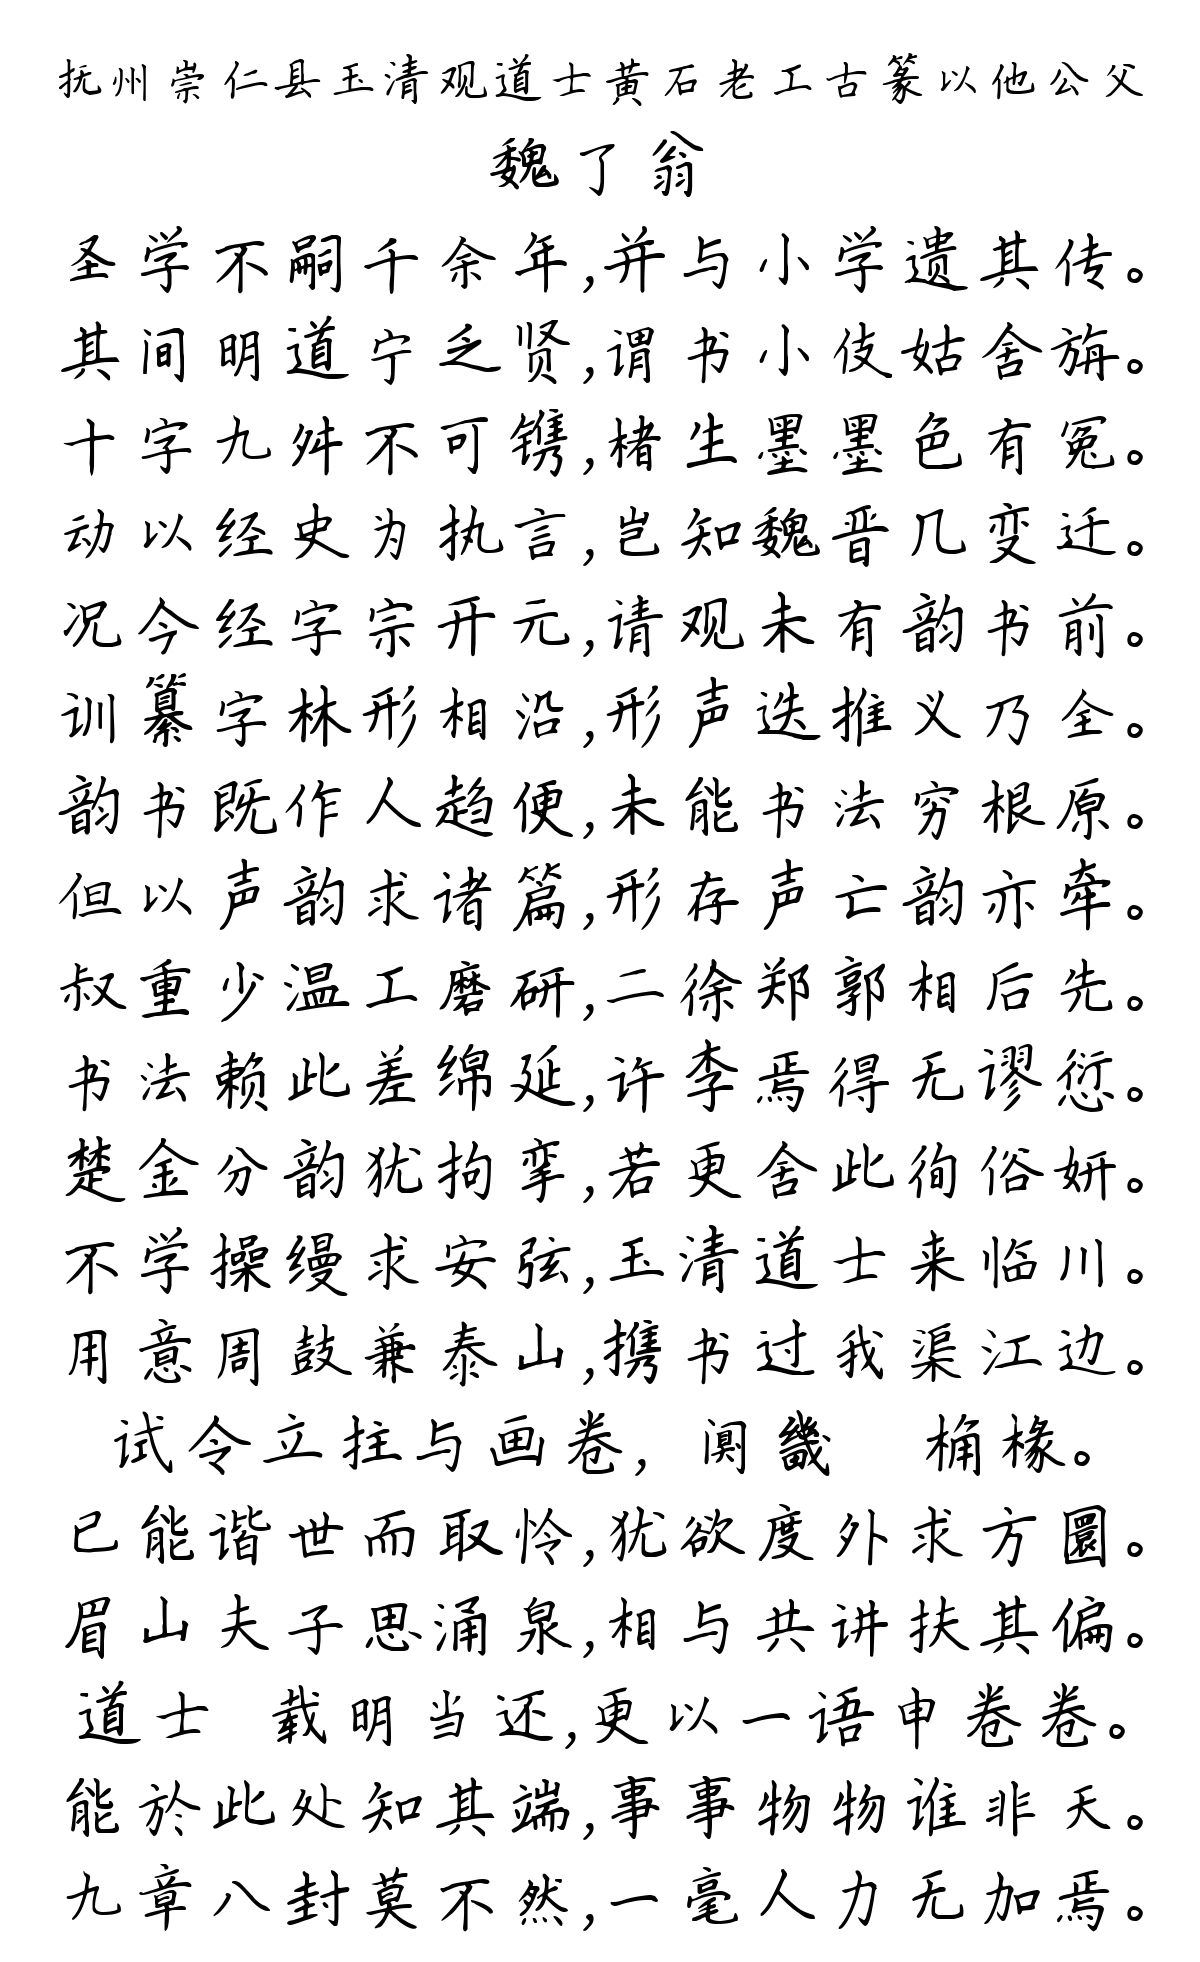 抚州崇仁县玉清观道士黄石老工古篆以他公父
魏了翁
圣学不嗣千余年,并与小学遗其传。
其间明道宁乏贤,谓书小伎姑舍旃。
十字九舛不可镌,楮生墨墨色有冤。
动以经史为执言,岂知魏晋几变迁。
况今经字宗开元,请观未有韵书前。
训纂字林形相沿,形声迭推义乃全。
韵书既作人趋便,未能书法穷根原。
但以声韵求诸篇,形存声亡韵亦牵。
叔重少温工磨研,二徐郑郭相后先。
书法赖此差绵延,许李焉得无谬愆。
楚金分韵犹拘挛,若更舍此徇俗妍。
不学操缦求安弦,玉清道士来临川。
用意周鼓兼泰山,携书过我渠江边。
试令立拄与画卷, 阒 桷椽。
已能谐世而取怜,犹欲度外求方圜。
眉山夫子思涌泉,相与共讲扶其偏。
道士 载明当还,更以一语申卷卷。
能於此处知其端,事事物物谁非天。
九章八封莫不然,一毫人力无加焉。